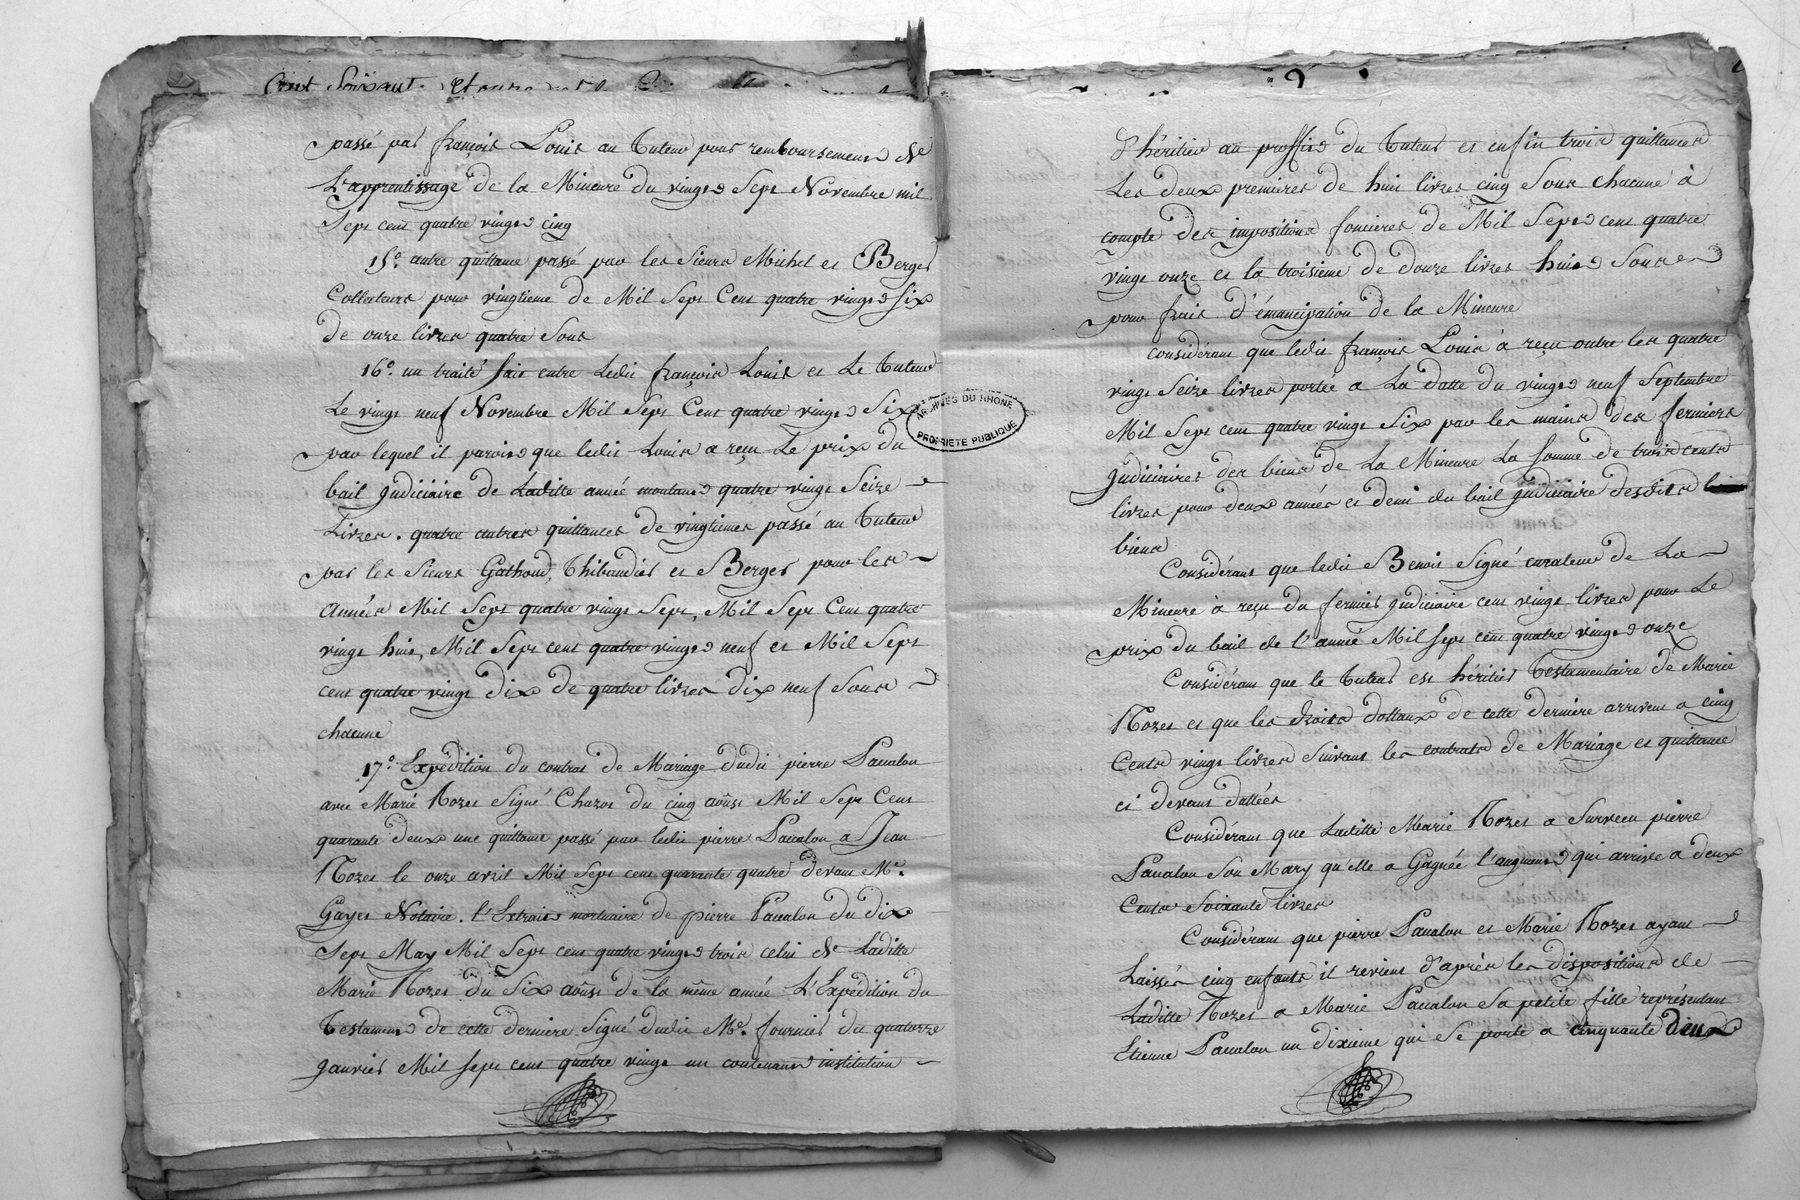 Cent Soixante et onze
passé par françois Louis au Tuteur pour remboursement de
L'apprentissage de la Mineure du vingt Sept Novembre mil
Sept cent quatre vingt cinq
15.° autre quittance passé par les Sieurs Michel et Berger
Collecteurs pour vingtieme de Mil Sept Cent quatre vingt six
de onze livres quatre Sous
16.° un traité fait entre Ledit françois Louis et Le Tuteur
Le vingt neuf Novembre Mil Sept Cent quatre vingt Six
par lequel il paroit que ledit Louis a reçu Le prix du
bail judiciaire de Laditte année montant quatre vingt Seize
Livres. quatre autres quittances de vingtiemes passé au Tuteur
par les Sieurs Gathoud, Thibaudier et Berger pour les
années Mil Sept quatre vingt Sept, Mil Sept Cent quatre
vingt huit, Mil Sept cent quatre vingt neuf et Mil Sept
cent quatre vingt dix de quatre livres dix neuf Sous
chacune
17.° Expédition du contrat de Mariage dudit pierre Paualon
avec Marie Rozer Signé Chazot du cinq août Mil Sept Cent
quarante deux une quittance passé par ledit pierre Paualon a Jean
Rozer le onze avril Mil Sept cent quarante quatre devant M.e
Gayet Notaire. l'Extrait mortuaire de pierre Paualon du dix
Sept May Mil Sept cent quatre vingt trois celui de Laditte
Marie Rozer du Six août de la même année L'Expédition du
Testament de cette derniere Signé dudit M.e fournier du quatorze
janvier Mil sept cent quatre vingt un contenant institution
d'héritier au proffit du Tuteur et enfin trois quittances
Les deux premieres de huit livres cinq Sous chacune à
compte des impositions foncieres de Mil Sept cent quatre
vingt onze et la troisieme de douze livres huit Sous
pour frais d'émancipation de la Mineure
Considérant que ledit françois Louis à reçu outre les quatre
vingt Seize livres portée a La datte du vingt neuf Septembre
Mil Sept cent quatre vingt Six par les mains des fermiers
judiciaires des biens de La Mineure La Somme de trois cents
livres pour deux années et demi du bail judiciaire desdits
biens
Considérant que ledit Benoit Signé curateur de La
Mineure à reçu du fermier judiciaire cent vingt livres pour Le
prix du bail de l'année Mil sept cent quatre vingt onze
Considérant que le Tuteur est héritier Testamentaire de Marie
Rozer et que les droits dottaux de cette derniere arrivent a cinq
Cents vingt livres Suivant les contrats de Mariage et quittance
ci devant dattées
Considérant que Laditte Marie Rozer a Survecu pierre
Paualon Son Mary qu'elle a Gagnée l'augment qui arrive a deux
Cents Soixante livres
Considérant que pierre Paualon et Marie Rozer ayant
Laissés cinq enfants il revient d'après les dispositions de
Laditte Rozer a Marie Paualon Sa petite fille représentant
Etienne Paualon un dixieme qui Se porte a cinquante deux
ARCHIVES DU RHONE
PROPRIETE PUBLIQUE